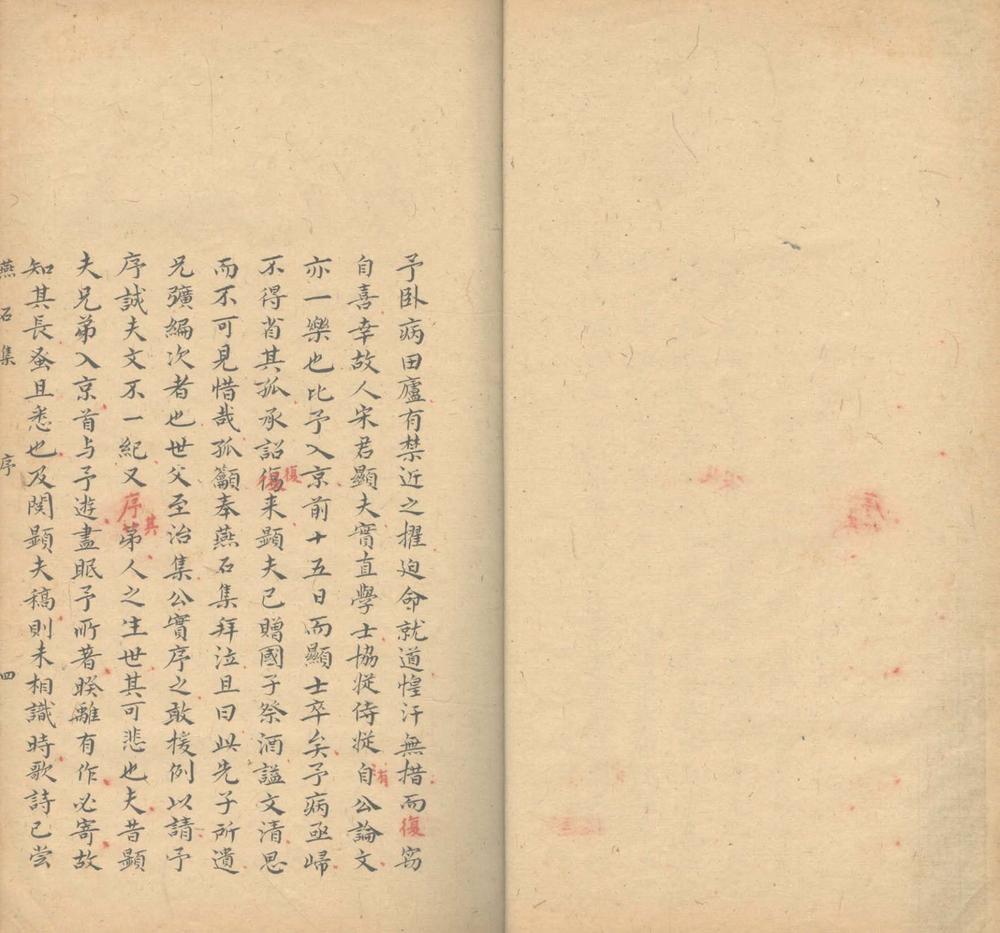 予臥病田廬有禁近之擢迫命就道惶汗無措而復窃
自喜幸故人宋君顯夫實直學士協従侍従自有公論文
亦一樂也比予入京前十五日而顯士卒矣予病亟歸
不得省其孤承詔復来顯夫已贈國子祭酒謚文清思
而不可見惜哉孤籲奉燕石集拜泣且曰此先子所遺
兄彍編次者也世父至治集公實序之敢援例以請予
序誠夫文不一紀又序其苐人之生世其可悲也夫昔顯
夫兄弟入京首与予遊盡眂予所著暌離有作必寄故
知其長蚤且悉也及閱顯夫稿則未相識時歌詩已尝
燕石集 序 四